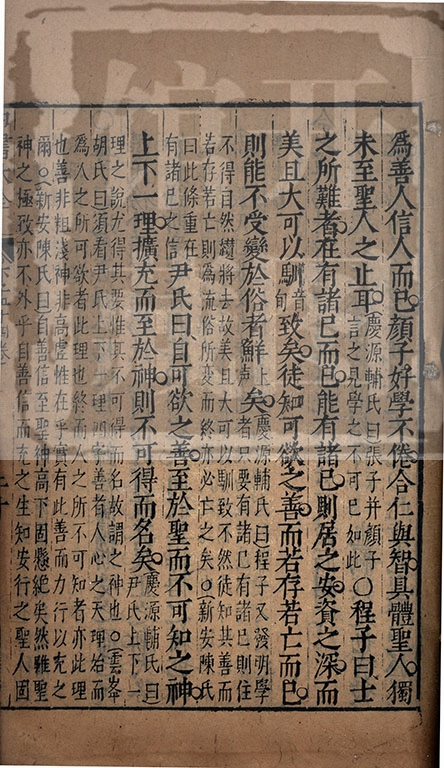 爲善人信人而已顔子好學不倦合仁與智具體聖人獨
未至聖人之止耳慶源輔氏曰張子并顔子
言之見學之不可已如此〇程子曰士
之所難者在有諸已而已能有諸已則居之安資之深而
美且大可以馴音旬致矣徒知可欲之善而若存若亡而已
則能不受變於俗者鮮上聲矣慶源輔氏曰程子又發明學
者只要有諸已有諸已則住
不得自然將去故美且大可以馴致不然徒知其善而
若存若亡則爲流俗所變而終亦必亡之矣〇新安陳氏
曰此條重在
有諸已之信尹氏曰自可欲之善至於聖而不可知之神
上下一理擴充而至於神則不可得而名矣慶源輔氏曰
尹氏上下一
理之說尤得其要惟其不可得而名故謂之神也〇雲峯
胡氏曰須看尹氏上下一理四字善者人心之天理始而
爲人之所可欲者此理也終而人之所不可知者亦此理
也善非粗淺神非高虚惟在乎實有此善而力行以充之
爾〇新安陳氏曰自善信至聖神高下固懸絶矣然雖聖
神之極致亦不外乎自善信而充之生知安行之聖人固